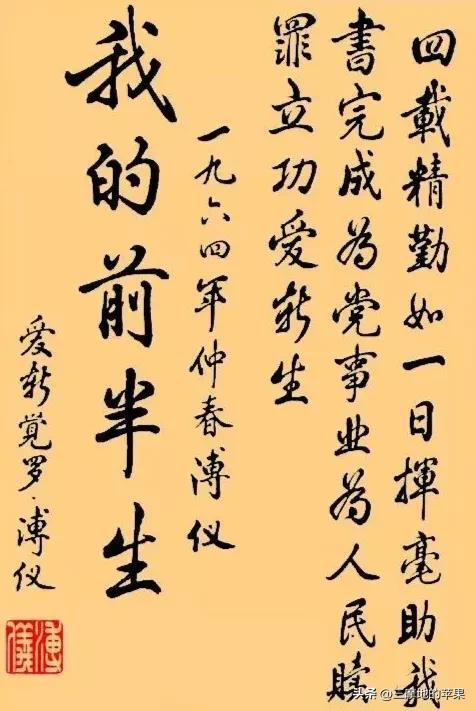 四載精勤如一日揮毫助我
書完成為党事业為人民贖
罪立功爱新生
一九六四年仲春溥仪
我的前半生
爱新覚罗·溥仪
溥儀
头条 @三摩地的苹果